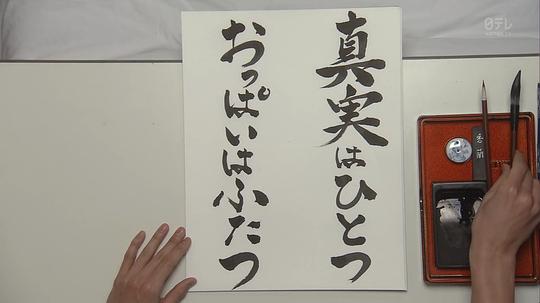 真実はひとつ
おっぱいはふたつ
日テレ